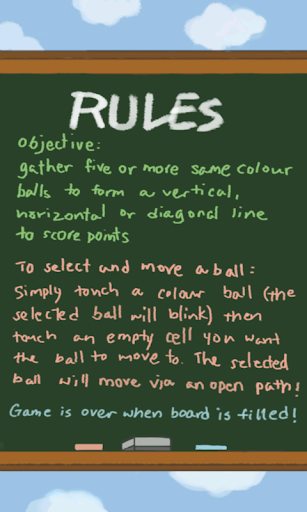 RULES
objective:
gather five or more same colour
balls to form a vertical,
horizontal or diagonal line
to score points
To select and move a ball:
Simply touch a colour ball (the
selected ball will blink) then
touch an empty cell you want
the ball to move to. The selected
ball will move via an open path!
Game is over when board is filled!